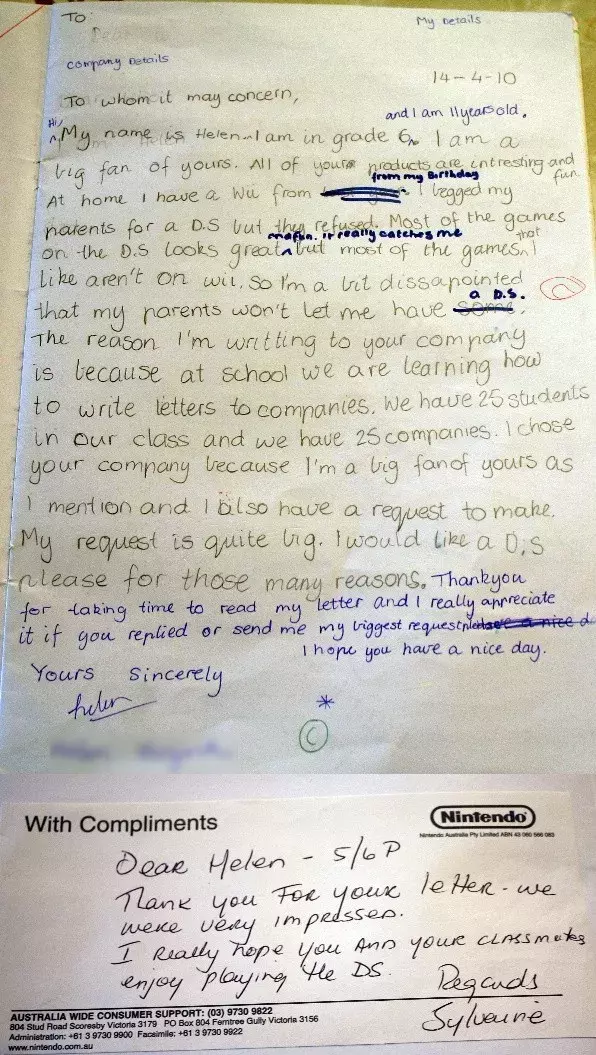 To
My Details
Company Details
14-4-10
To whom it may concern,
and I am 11 years old.
Hi, My name is Helen. I am in grade 6. I am a
big fan of yours. All of your products are intresting and
fun
from my Birthday
At home I have a Wii from I begged my
parents for a D.S but they refused. Most of the games
and fun. it really catches me
that
on the D.S looks great but most of the games I
like aren't on wii. So I'm a bit dissapointed
a D.S.
that my parents won't let me have some.
The reason I'm writting to your company
is because at school we are learning how
to write letters to companies. We have 25 students
in our class and we have 25 companies. I chose
your company because I'm a big fan of yours as
I mention and I also have a request to make.
My request is quite big. I would like a D.S
please for those many reasons. Thankyou
for taking time to read my letter and I really appreciate
it if you replied or send me my biggest request please a nice d
I hope you have a nice day.
Yours Sincerely
helen
*
C
With Compliments
Nintendo
Nintendo Australia Pty Limited ABN 43 060 566 083
Dear Helen - 5/6P
Thank you for your letter - we
were very impressed.
I really hope you and your classmates
enjoy playing the DS.
Regards
Sylvaine
AUSTRALIA WIDE CONSUMER SUPPORT: (03) 9730 9822
804 Stud Road Scoresby Victoria 3179 PO Box 804 Ferntree Gully Victoria 3156
Administration: +61 3 9730 9900 Facsimile: +61 3 9730 9922
www.nintendo.com.au